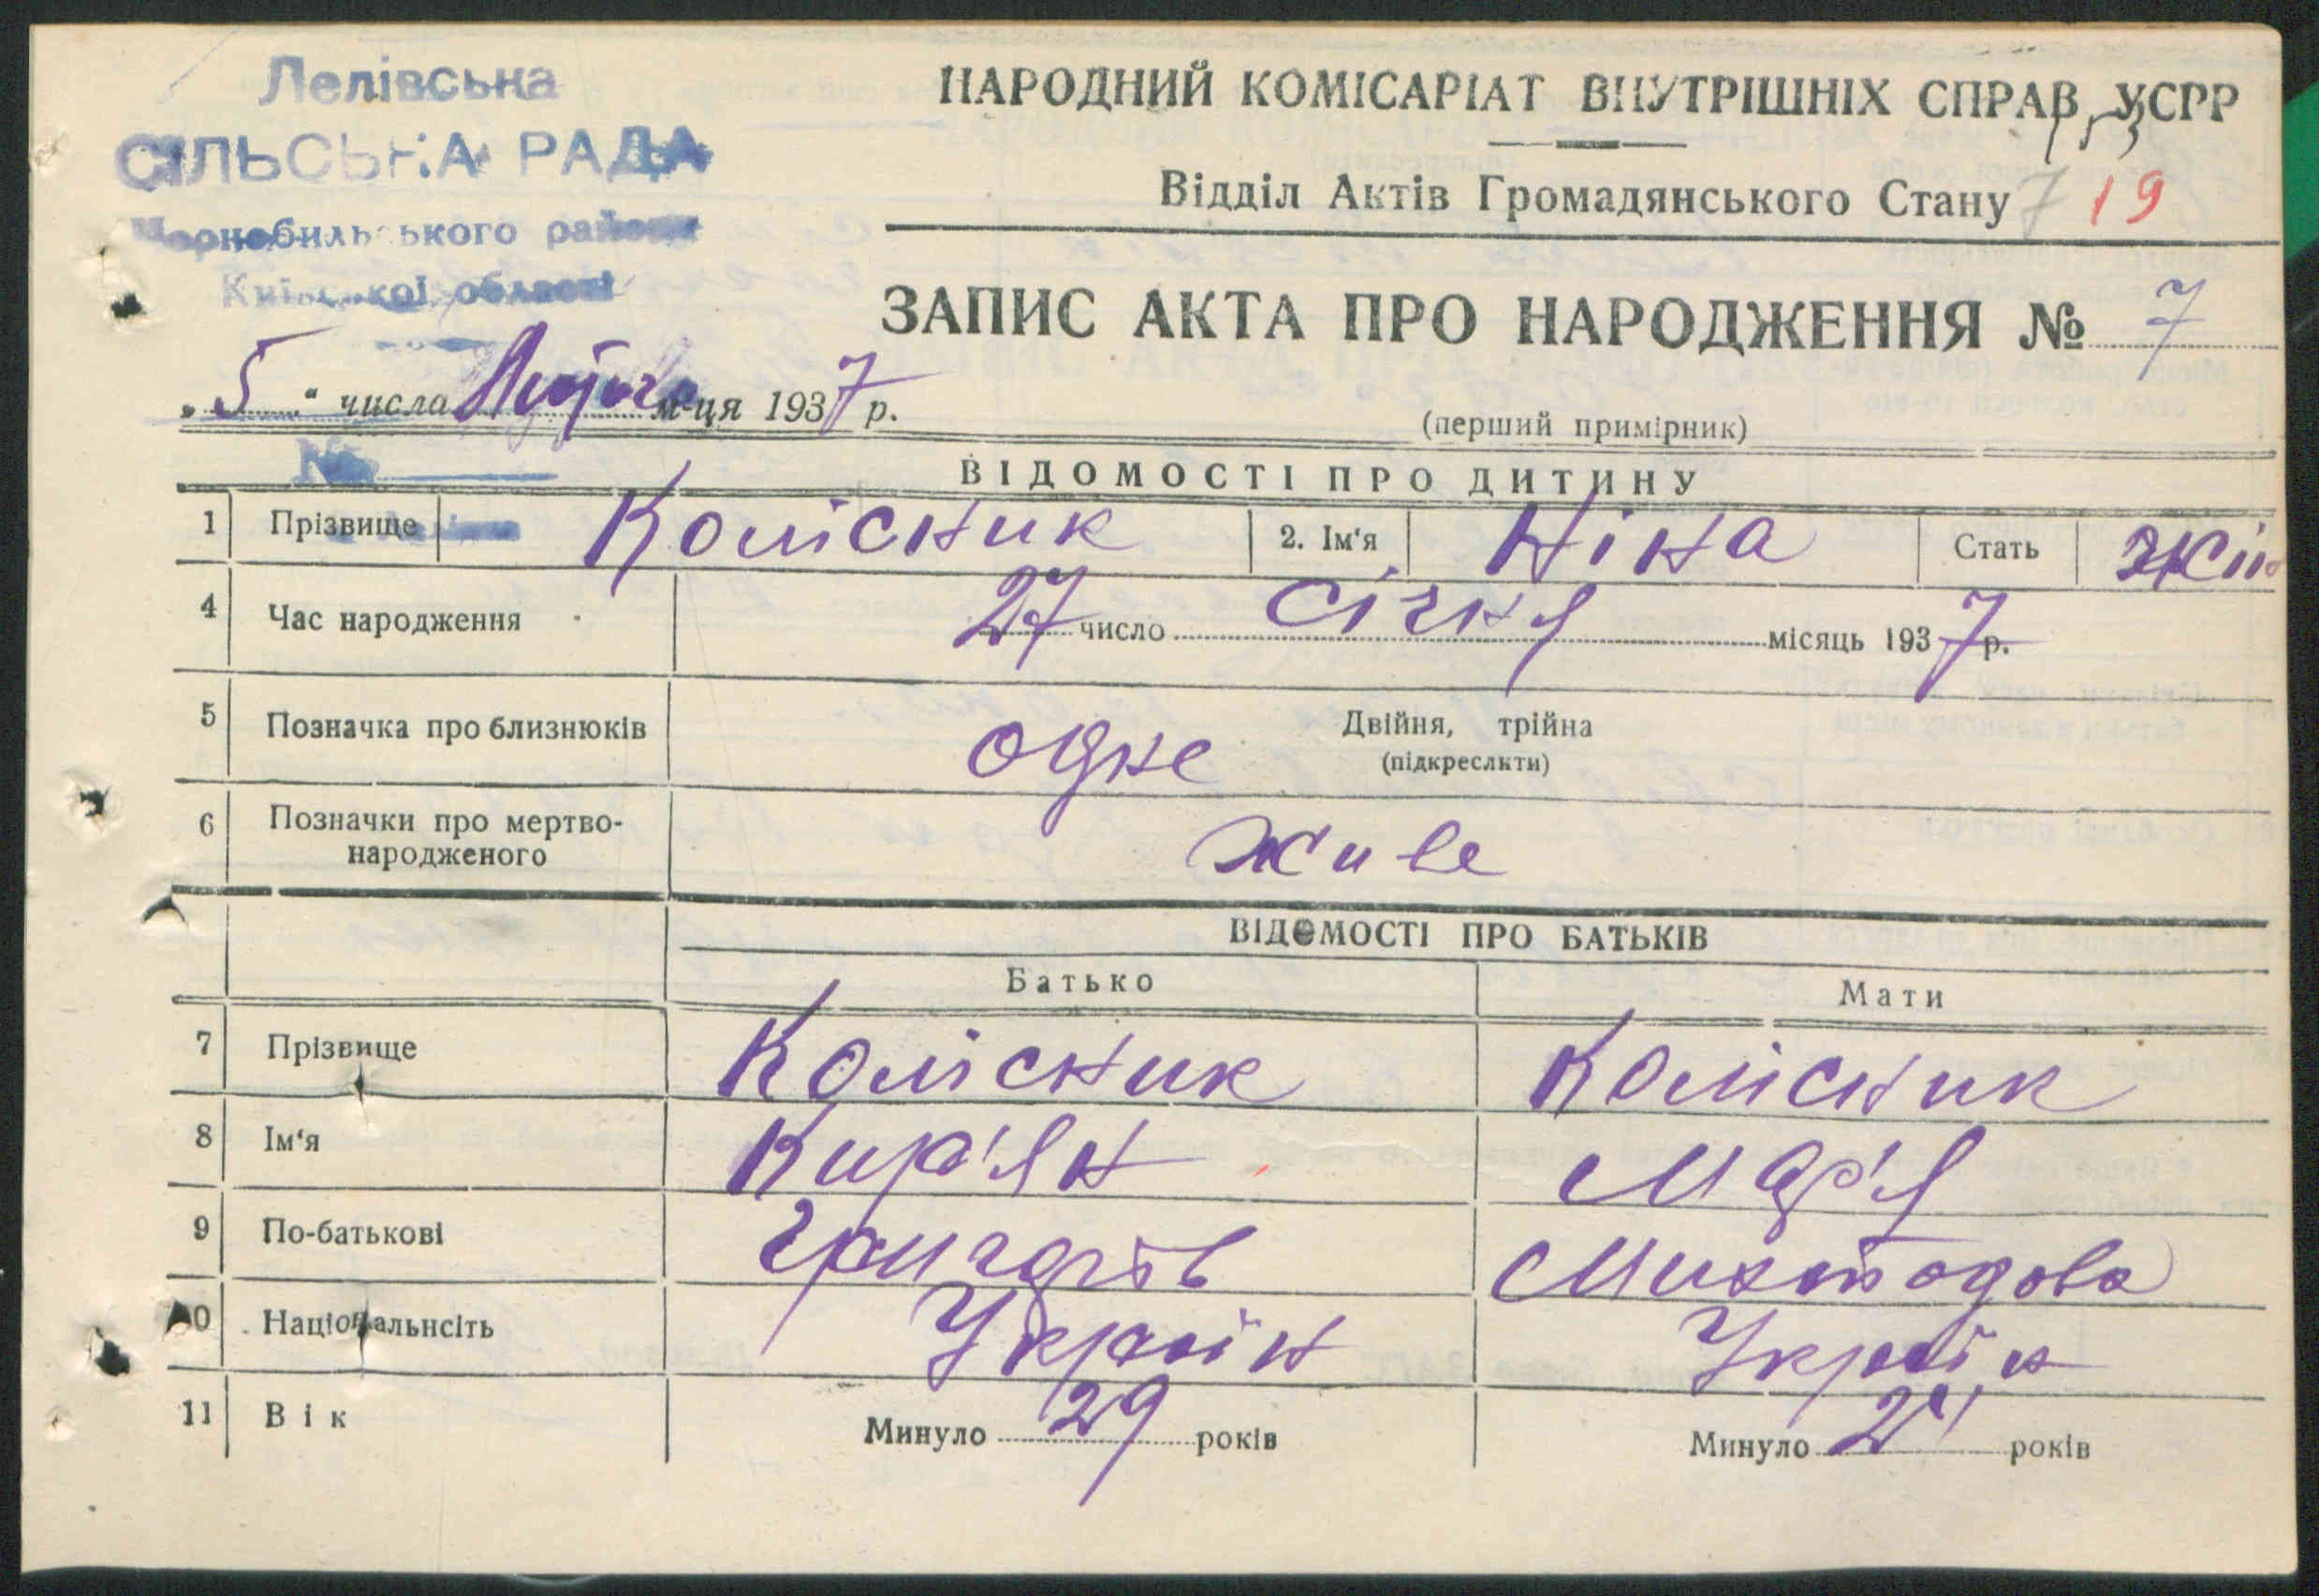 Лелівська
СІЛЬСЬКА РАДА
Чорнобильського району
Київської області
№
НАРОДНИЙ КОМІСАРІАТ ВНУТРІШНІХ СПРАВ УСРР
Відділ Актів Громадянського Стану 7 19
ЗАПИС АКТА ПРО НАРОДЖЕННЯ № 7
„5“ числа Лютого м-ця 1937 р.
(перший примірник)
ВІДОМОСТІ ПРО ДИТИНУ
1 Прізвище Колісник 2. Ім'я Ніна Стать жін
4 Час народження 27 число січня місяць 1937 р.
5 Позначка про близнюків одне Двійня, трійна
(підкреслити)
6 Позначки про мертво-
народженого живе
ВІДОМОСТІ ПРО БАТЬКІВ
Батько Мати
7 Прізвище Колісник Колісник
8 Ім'я Кир'ян Мар'я
9 По-батькові Григорів
10 Національнсіть Україн Україн
11 Вік Минуло 29 років Минуло років